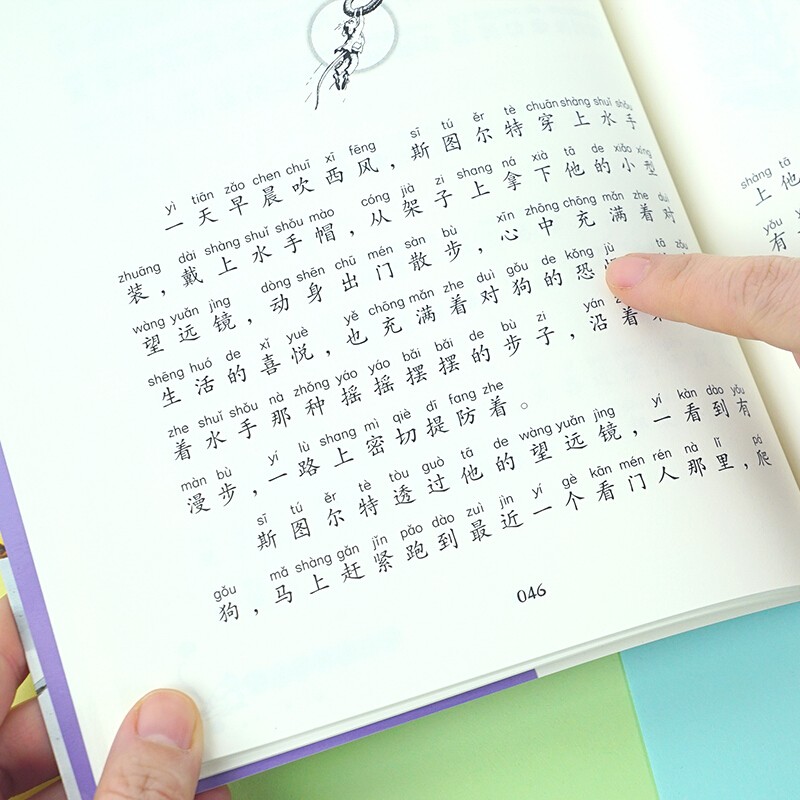 yì tiān zǎo chen chuī xī fēng sī tú ěr tè chuān shàng shuǐ shǒu
一天早晨吹西风，斯图尔特穿上水手
zhuāng dài shàng shuǐ shǒu mào cóng jià zi shang ná xià tā de xiǎo xíng
装，戴上水手帽，从架子上拿下他的小型
wàng yuǎn jìng dòng shēn chū mén sàn bù xīn zhōng chōng mǎn zhe duì
望远镜，动身出门散步，心中充满着对
shēng huó de xǐ yuè yě chōng mǎn zhe duì gǒu de kǒng jù tā zǒu
生活的喜悦，也充满着对狗的恐
zhe shuǐ shǒu nà zhǒng yáo yáo bǎi bǎi de bù zi yán
着水手那种摇摇摆摆的步子，沿着
màn bù yí lù shang mì qiè dī fang zhe
漫步，一路上密切提防着。
sī tú ěr tè tòu guò tā de wàng yuǎn jìng yí kàn dào yǒu
斯图尔特透过他的望远镜，一看到有
gǒu mǎ shàng gǎn jǐn pǎo dào zuì jìn yí gè kān mén rén nà lǐ pá
狗，马上赶紧跑到最近一个看门人那里，爬
046
shàng tā
上他
yǒu
有